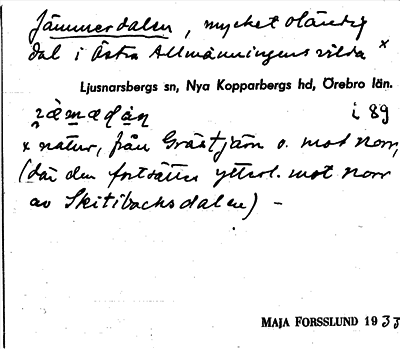 Jämmerdalen, mycket oländig
dal i Östra Allmänningens vilda x
Ljusnarsbergs sn, Nya Kopparbergs hd, Örebro län.
i 89
x natur, från Grästjärn o. mot norr,
(där den fortsättes ytterl. mot norr
av Skitibacksdalen) –
MAJA FORSSLUND 1933